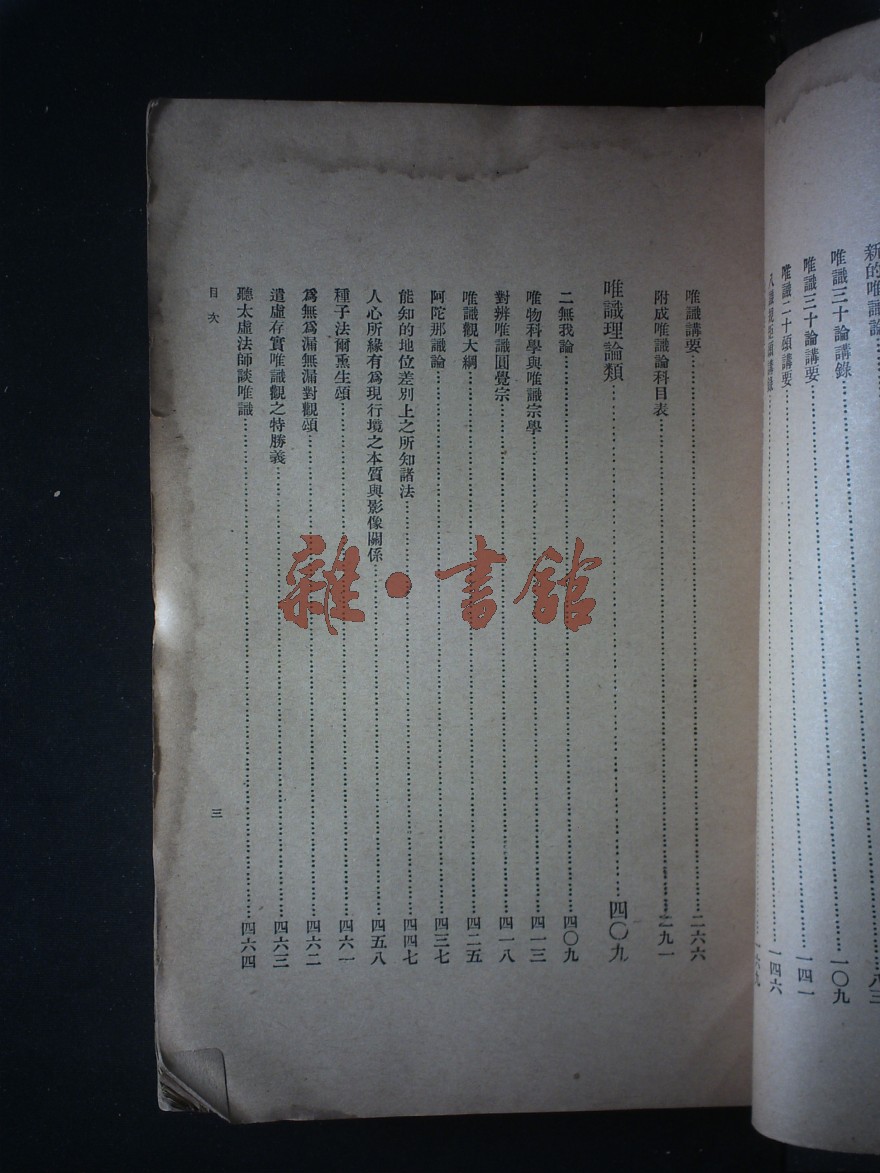 新的唯識論……八三
唯識三十論講錄……一〇九
唯識三十論講要……一四一
唯識二十頌講要……一四六
八識規矩頌講錄……一六九
唯識講要……二六六
附成唯識論科目表……二九一
唯識理論類……四〇九
二無我論……四〇九
唯物科學與唯識宗學……四一三
對辨唯識圓覺宗……四一八
唯識觀大綱……四二五
阿陀那識論……四三七
能知的地位差別上之所知諸法……四四七
人心所緣有爲現行境之本質與影像關係……四五八
種子法爾熏生頌……四六一
爲無爲漏無漏對觀頌……四六二
遣虛存實唯識觀之特勝義……四六三
聽太虛法師談唯識……四六四
目次
三
雜·書館